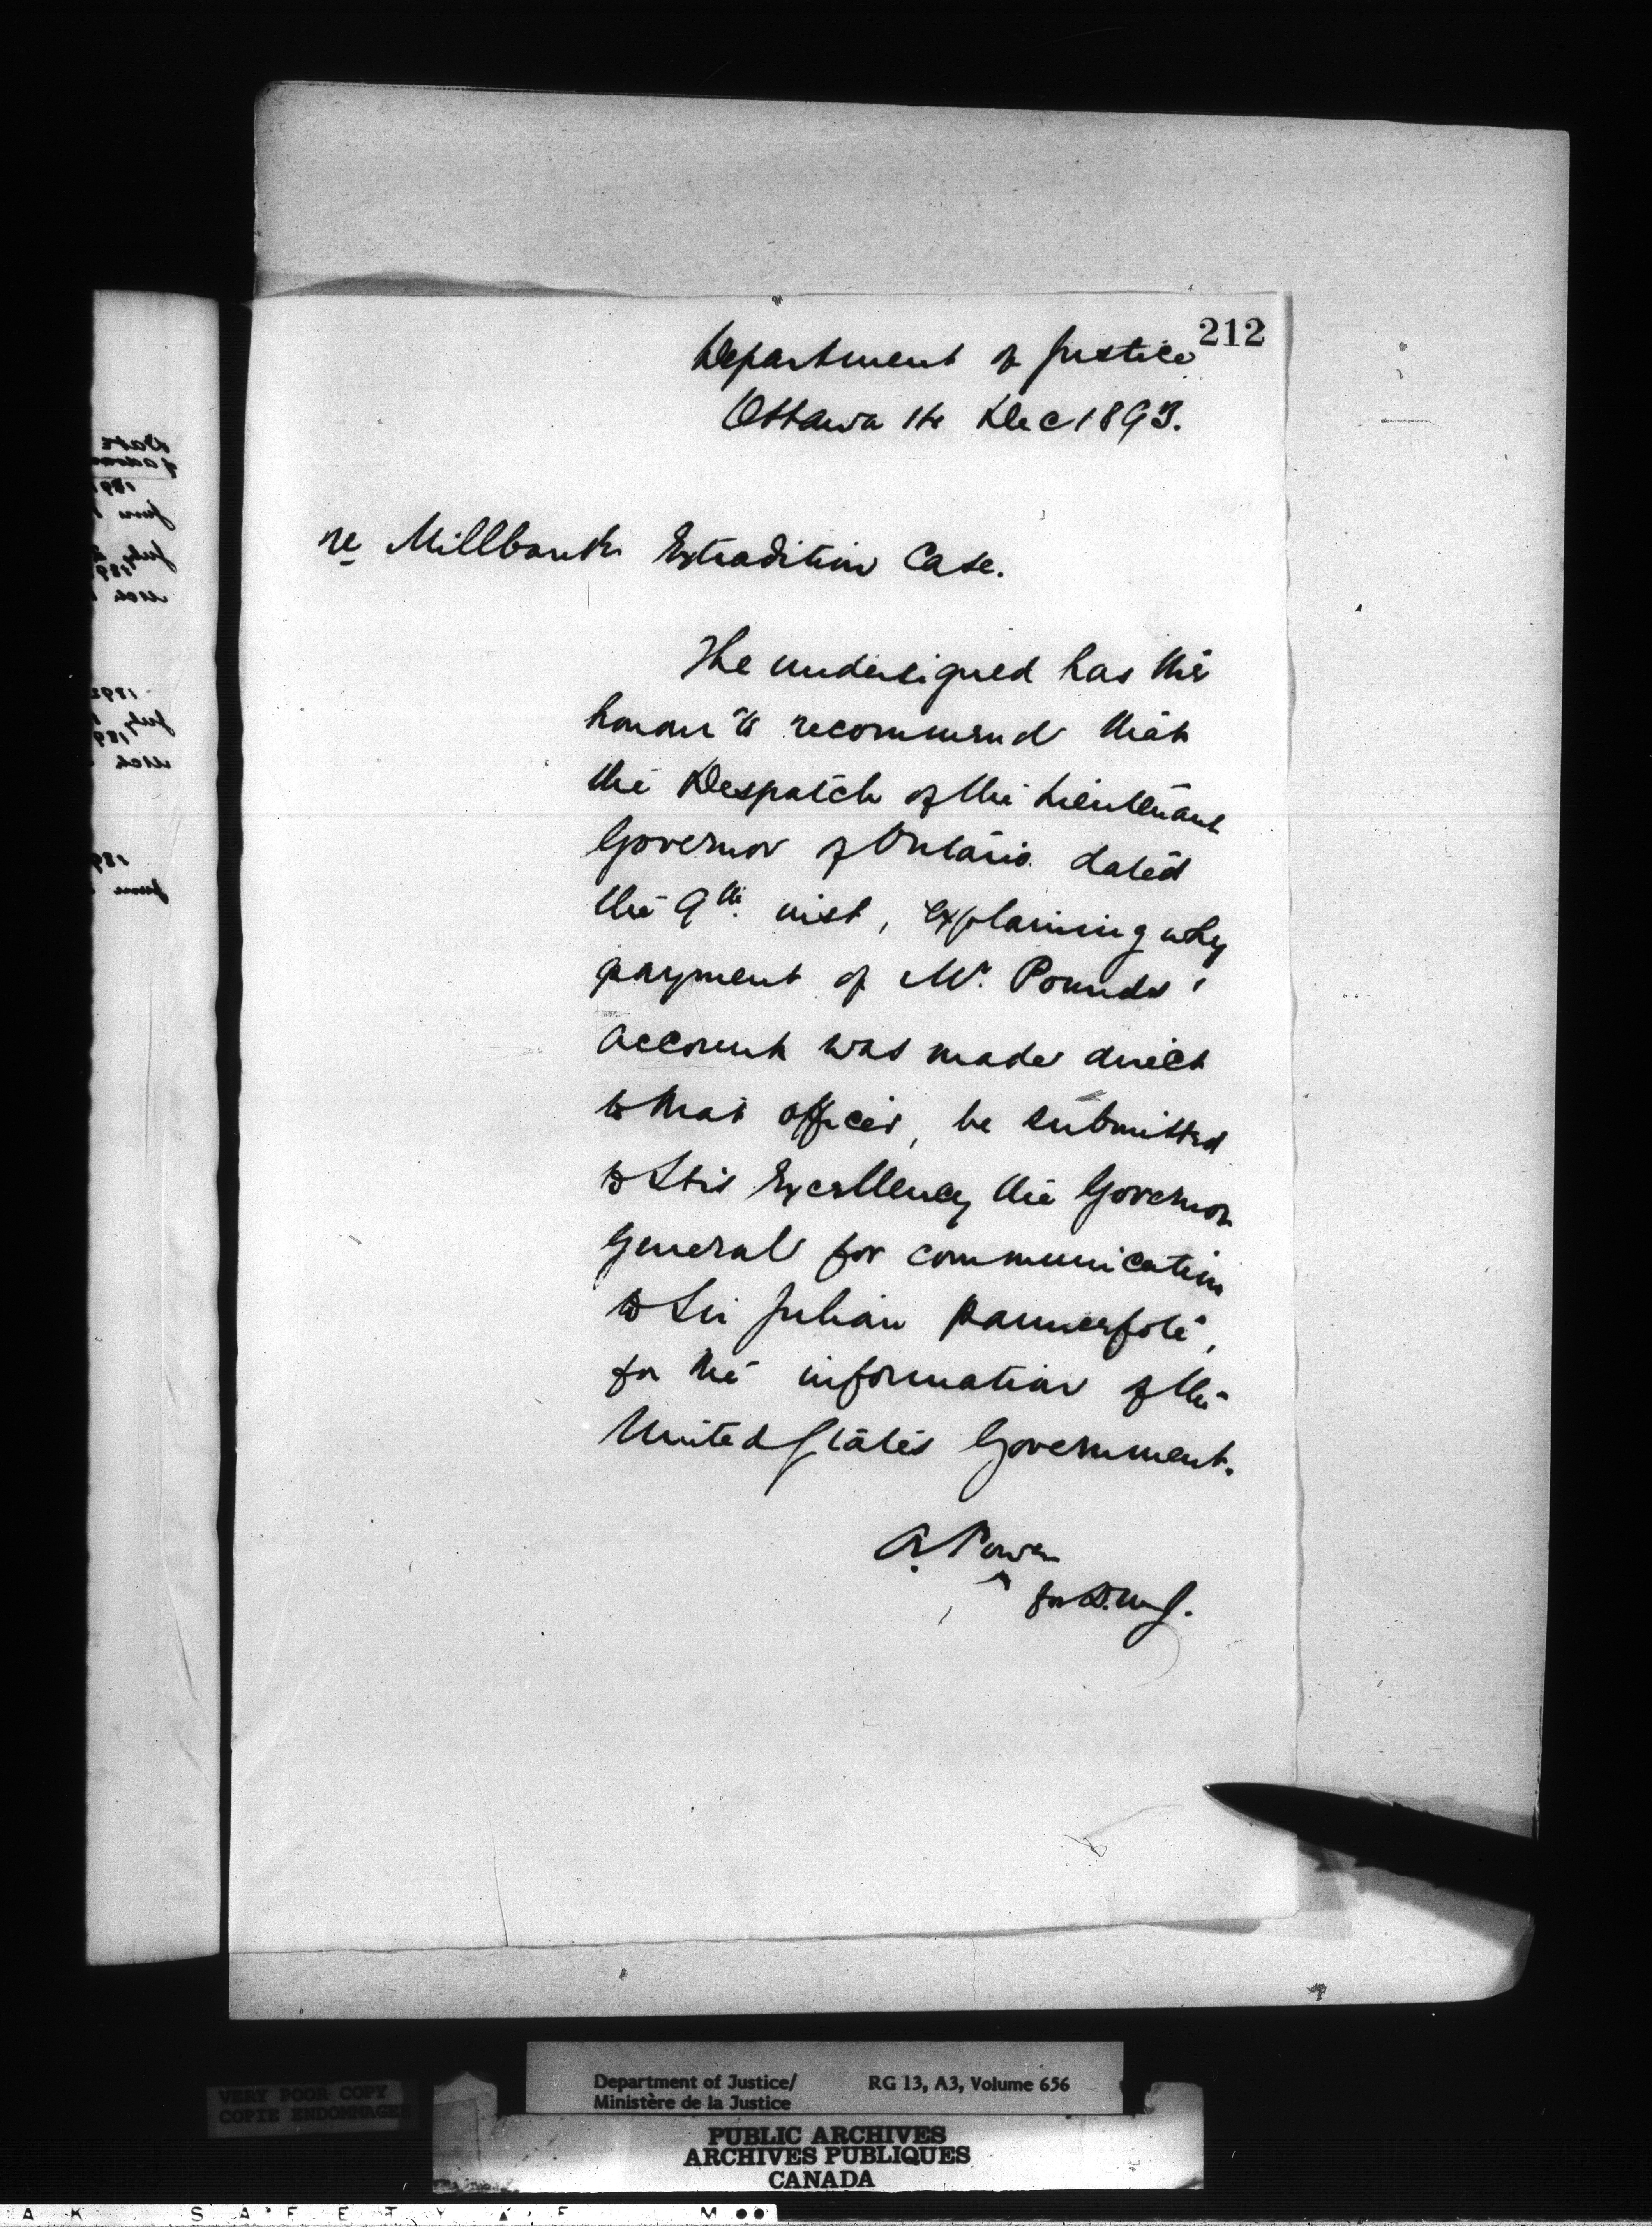 212
Department of Justice
Ottawa Dec 1893.
re Millbank Extradition Case.
The undersigned has the
honour to recommend that
the Despatch of the Lieutenant
Governor of Ontario dated
the 9th inst, explaining why
payment of Mr. Pounds'
account was made direct
to that officer, be submitted
to His Excellency the Governor
General for communication
to Sir Julian Pauncefote,
for the information of the
United States Government.
A. Power
for D.M.J.
Date
1891
June
July
189
Mch
1892
July
189
Mch
189
June
VERY POOR COPY
COPIE ENDOMMAGEE
Department of Justice/ RG 13, A3, Volume 656
Ministère de la Justice
PUBLIC ARCHIVES
ARCHIVES PUBLIQUES
CANADA
A K S A F E T Y F M